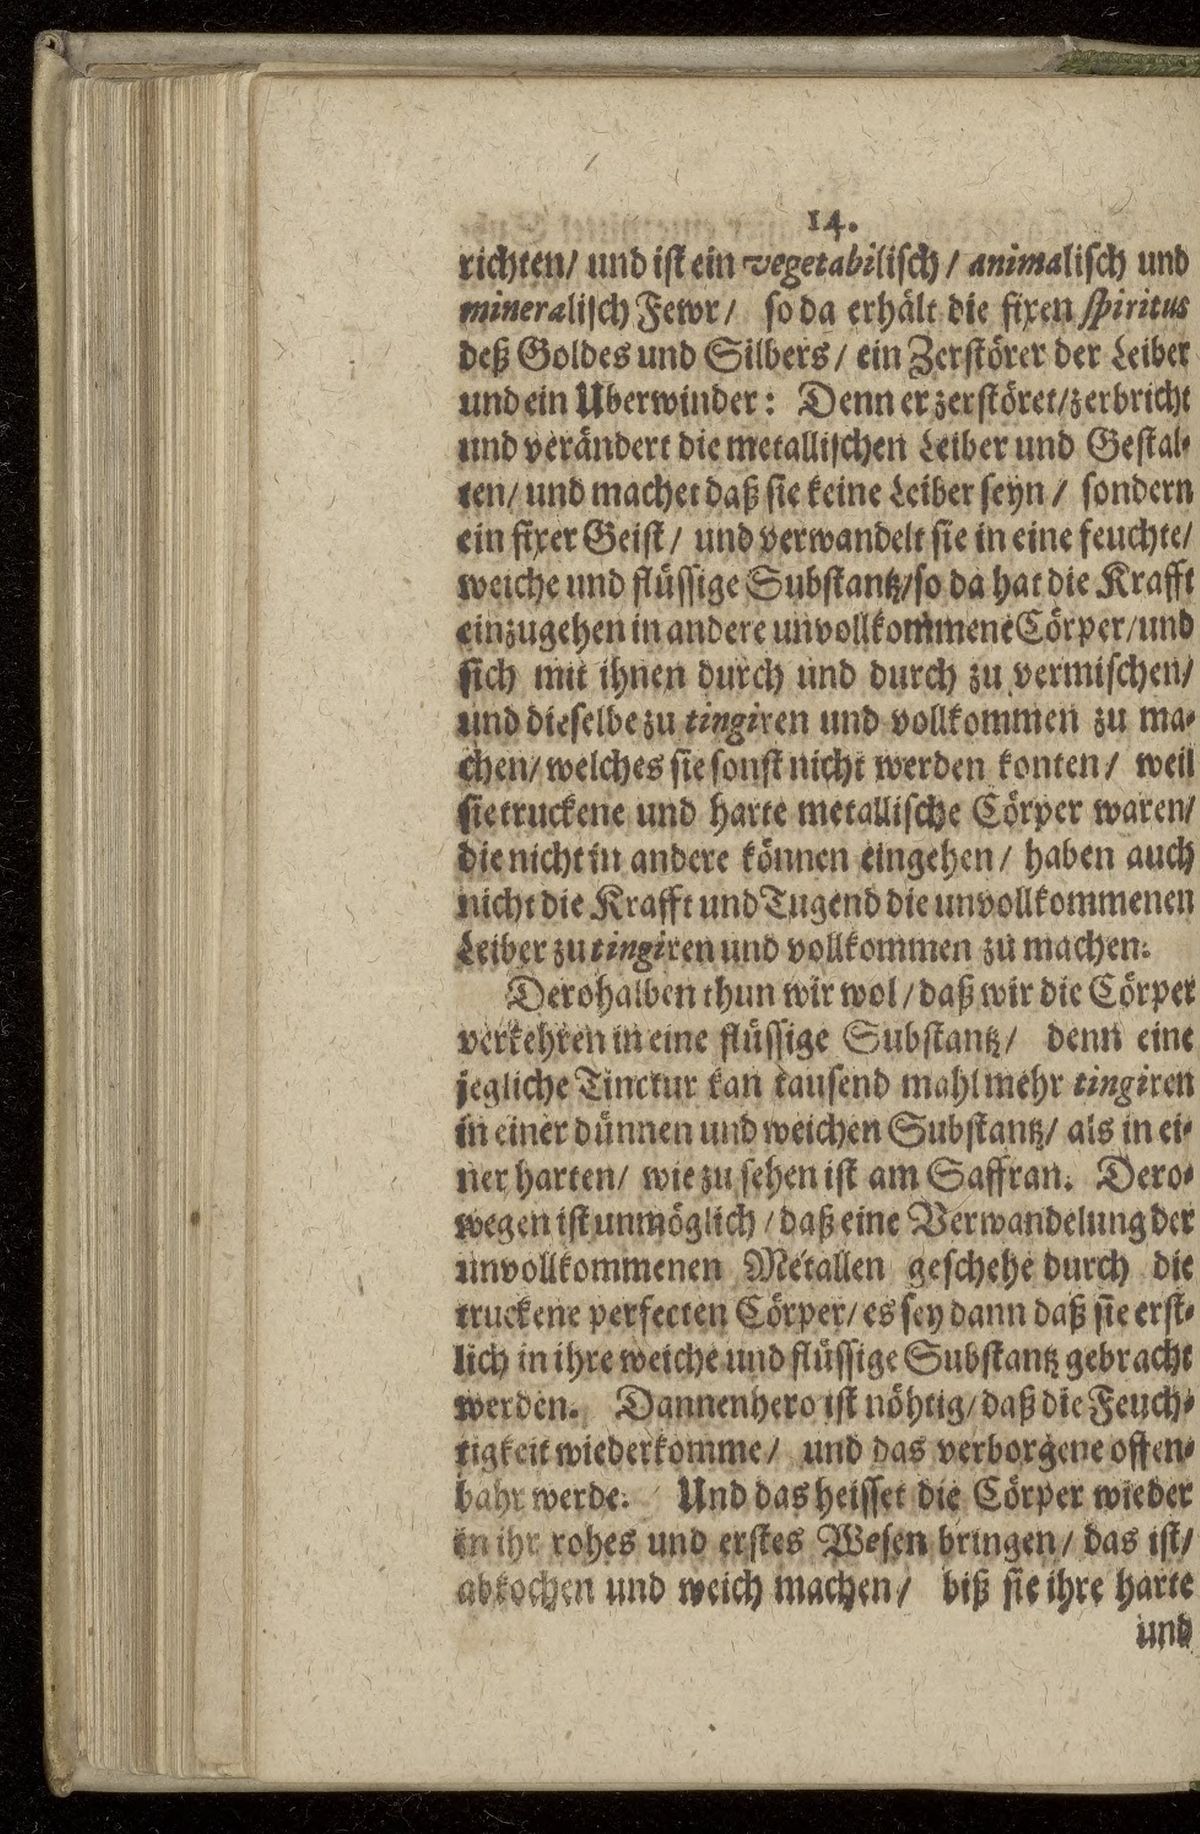 14.
richten/ und ist ein vegetabilisch/ animalisch und
mineralisch Fewr/ so da erhält die fixen spiritus
deß Goldes und Silbers/ ein Zerstörer der Leiber
und ein Uberwinder: Denn er zerstöret/zerbricht
und verändert die metallischen Leiber und Gestal-
ten/ und machet daß sie keine Leiber seyn/ sondern
ein fixer Geist/ und verwandelt sie in eine feuchte/
weiche und flüssige Substantz/so da hat die Krafft
einzugehen in andere unvollkommene Cörper/und
sich mit ihnen durch und durch zu vermischen/
und dieselbe zu tingiren und vollkommen zu ma-
chen/ welches sie sonst nicht werden konten/ weil
sie truckene und harte metallische Cörper waren/
die nicht in andere können eingehen/ haben auch
nicht die Krafft und Tugend die unvollkommenen
Leiber zu tingiren und vollkommen zu machen.
Derohalben thun wir wol/daß wir die Cörper
verkehren in eine flüssige Substantz/ denn eine
jegliche Tinctur kan tausend mahl mehr tingiren
in einer dünnen und weichen Substantz/ als in ei-
ner harten/ wie zu sehen ist am Saffran. Dero-
wegen ist unmöglich/daß eine Verwandelung der
unvollkommenen Metallen geschehe durch die
truckene perfecten Cörper/ es sey dann daß sie erst-
lich in ihre weiche und flüssige Substantz gebracht
werden. Dannenhero ist nöhtig/daß die Feuch-
tigkeit wiederkomme/ und das verborgene offen-
bahr werde. Und das heisset die Cörper wieder
in ihr rohes und erstes Wesen bringen/ das ist/
abkochen und weich machen/ biß sie ihre harte
und